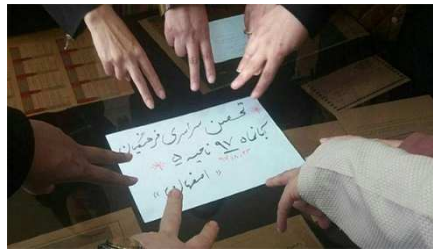 تحصن سراسری فرهنگیان
آبان ماه ۹۷ ناحیه ۵
« اصفهان »